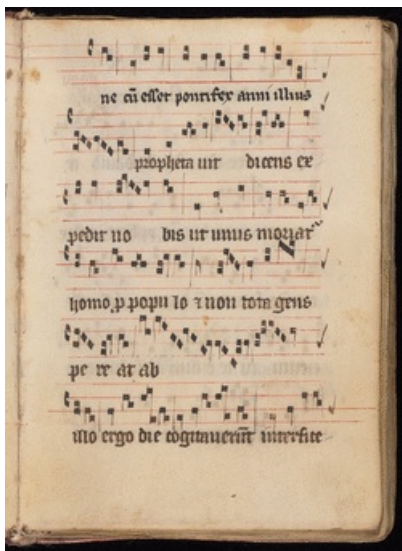 ne cū esset pontifex anni illius
propheta uit dicens ex
pedit uo bis ut unus moriat᷑
homo ꝓ popu lo ⁊ non tota gens
pe re at ab
illo ergo die cogitauerūt interfice